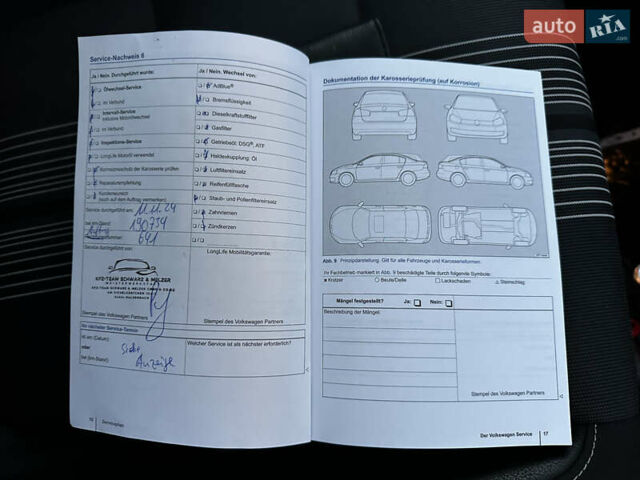 auto RIA .com
Service-Nachweis 6
Ja / Nein. Durchgeführt wurde:
Ja / Nein. Wechsel von:
Ölwechsel-Service
AdBlue®
im Verbund
Bremsflüssigkeit
Intervall-Service
inklusive Motorölwechsel
Dieselkraftstofffilter
im Verbund
Gasfilter
Inspektions-Service
Getriebeöl: DSG®, ATF
LongLife Motoröl verwendet
Haldexkupplung: Öl
Korrosionsschutz der Karosserie prüfen
Luftfiltereinsatz
Reparaturempfehlung
Reifenfüllflasche
Kundenwunsch
(auch auf dem Auftrag vermerken)
Staub- und Pollenfiltereinsatz
Service durchgeführt am: 11.11.24
Zahnriemen
bei km-Stand: 190734
Zündkerzen
641
Service durchgeführt von:
LongLife Mobilitätsgarantie:
KFZ-TEAM SCHWARZ & MELZER
MEISTERWERKSTATT
KFZ-TEAM SCHWARZ & MELZER
Stempel des Volkswagen Partners
Stempel des Volkswagen Partners
Ihr nächster Service-Termin:
ist am (Datum):
Welcher Service ist als nächster erforderlich?
oder
siehe
bei (km-Stand):
Anzeige
Serviceplan
Dokumentation der Karosserieprüfung (auf Korrosion)
Abb. 9 Prinzipdarstellung. Gilt für alle Fahrzeuge und Karosserieformen.
Ihr Fachbetrieb markiert in Abb. 9 beschädigte Teile durch folgende Symbole:
× Kratzer ○ Beule/Delle □ Lackschaden △ Steinschlag
Mängel festgestellt? Ja: Nein:
Beschreibung der Mängel:
Stempel des Volkswagen Partners
Der Volkswagen Service 17